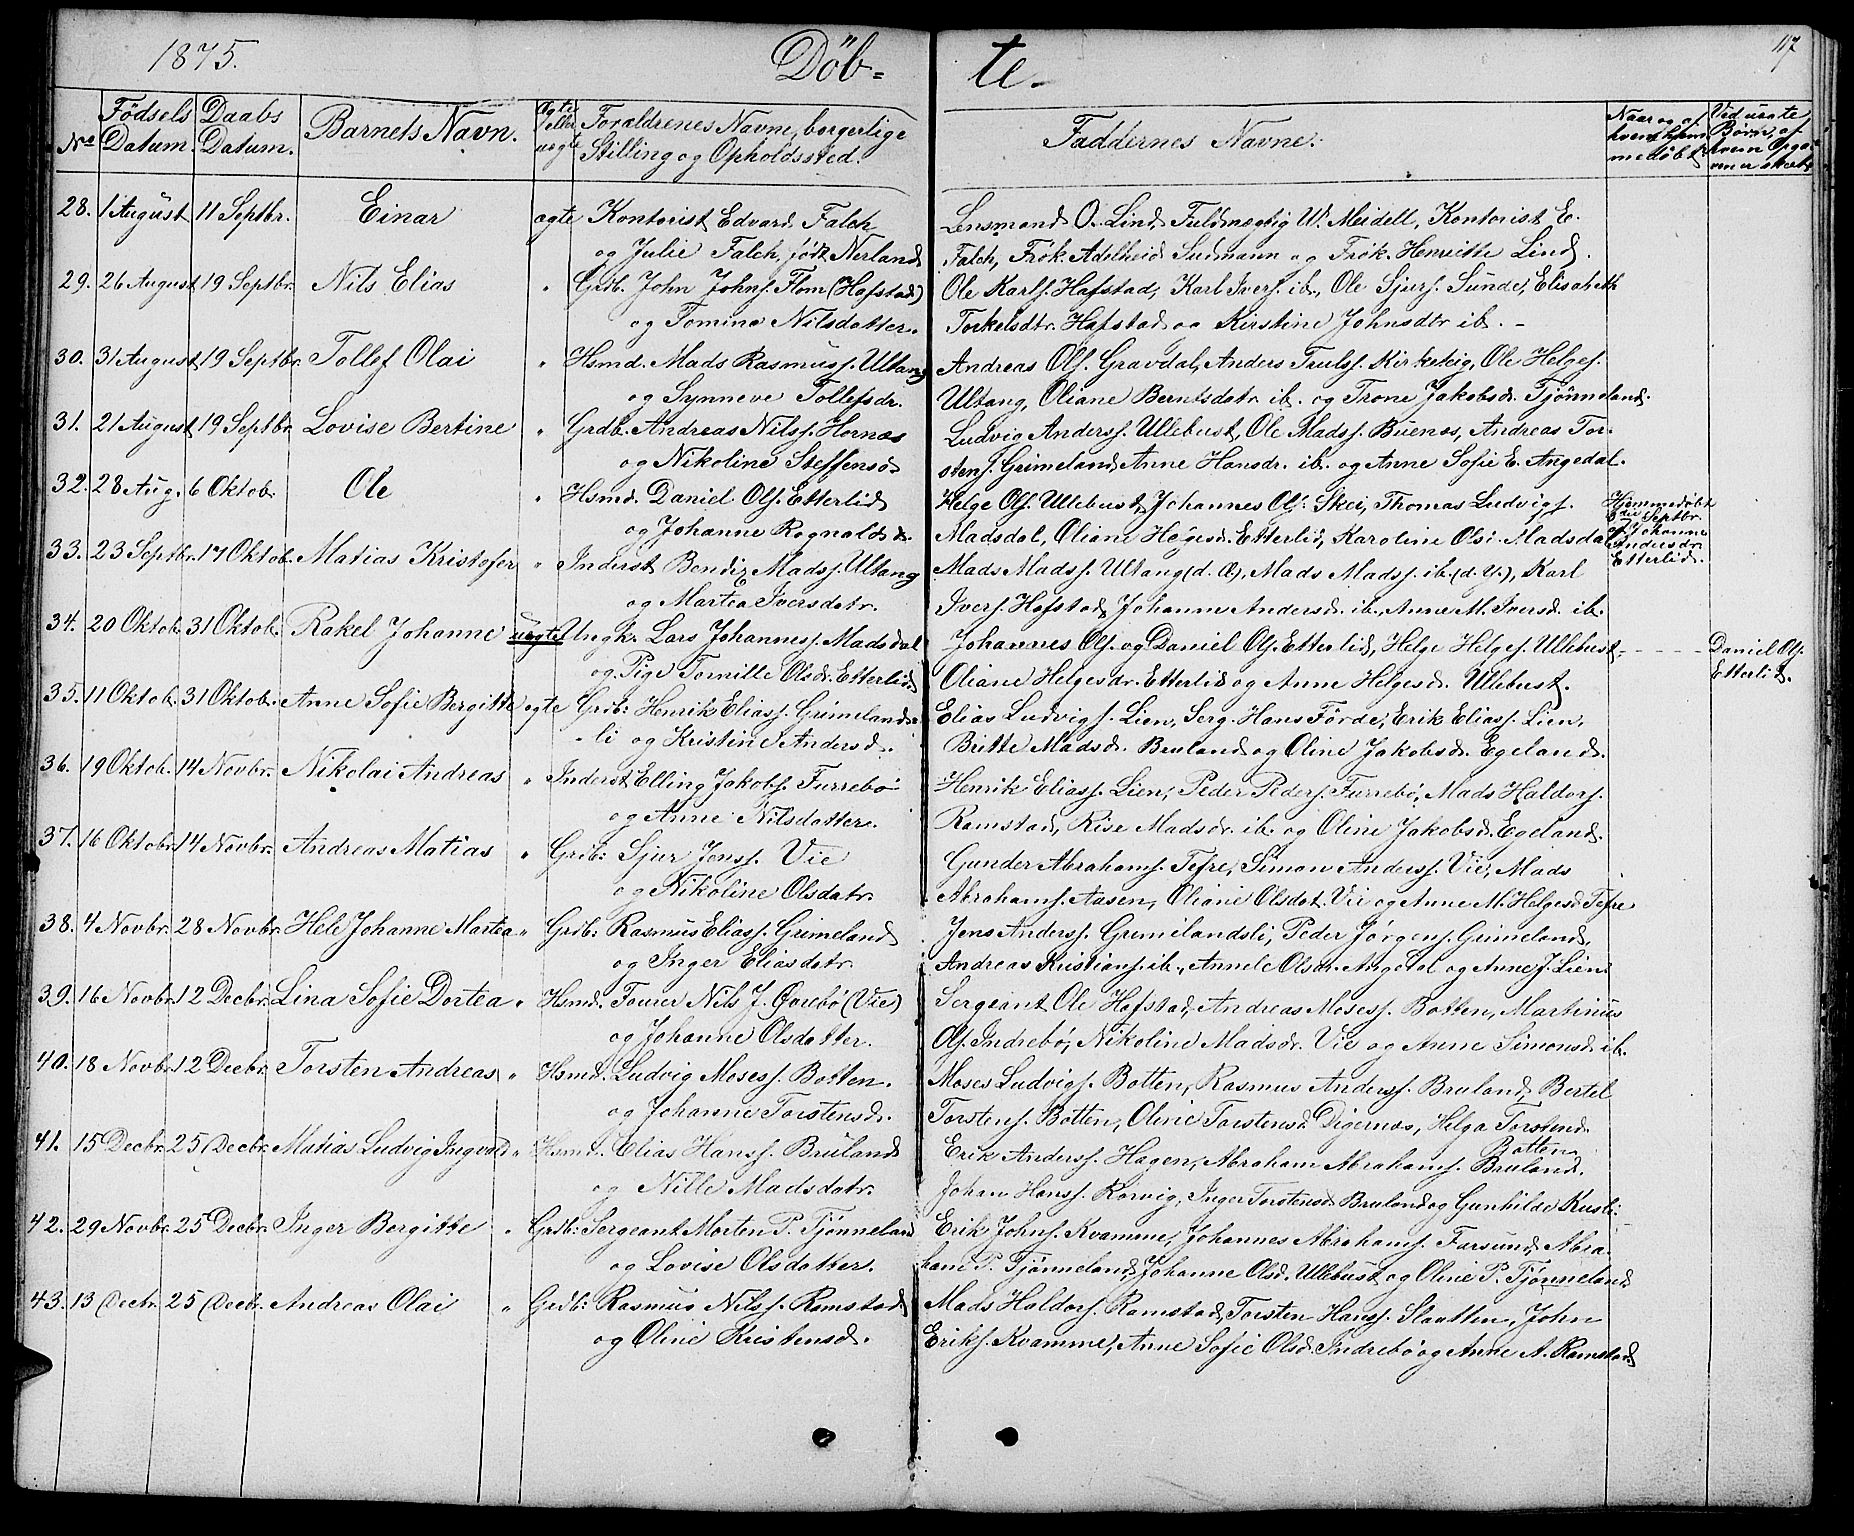 1875. Döb- te. 117
No Födsels Datum. Daabs Datum. Barnets Navn. Ægte eller uægte Forældrenes Navne, borgerlige Stilling og Opholdssted. Faddernes Navne. Naar og af hvem hjemmedöbt Ved uægte Børn, af hvem Opgaven er skeet
28. 1 August 11 Septbr. Einar ægte Kontorist Edvard Falch Lensmand O. Lind, Fuldmægtig W. Meidell, Kontorist E.
og Julie Falch, født Nerland Falch, Frøk. Adelheid Sudmann og Frøk. Henriette Lind.
29. 26 August 19 Septbr. Nils Elias " Grdb. John Johns. Flom (Hafstad) Ole Karls. Hafstad, Karl Ivers. ib., Ole Sjurs. Sunde, Elisabeth
og Tomine Nilsdatter. Torkelsdtr. Hafstad og Kirstine Johnsdtr ib. -
30. 31 August 19 Septbr. Tollef Olai " Hsmd. Mads Rasmuss. Ultang Andreas Ols. Gravdal, Anders Trulss. Kirketeig, Ole Helges.
og Synneve Tollefsdr. Ultang, Oliane Berntsdatr ib. og Trone Jakobsdr. Tjønneland.
31. 21 August 19 Septbr. Lovise Bertine " Grdb. Andreas Nilss. Hornæs Ludvig Anderss. Ullebust, Ole Madss. Buenæs, Andreas Tor-
og Nikoline Steffensd. stens. Grimeland, Anne Hansdr. ib. og Anne Sofie E. Angedal.
32. 28 Aug. 6 Oktob. Ole " Hsmd. Daniel Ols. Etterlid Helge Ols. Ullebust, Johannes Ols. Skei, Thomas Ludvigs. Hjemmedøbt 3die Septbr. af Johanne Andersdr. Etterlid.
og Johanne Rognaldsd. Madsdal, Oliane Helgesd. Etterlid, Karoline Olsd. Madsdal
33. 23 Septbr. 17 Oktob. Matias Kristofer " Inderst Bendix Madss. Ultang Mads Madss. Ultang (d. Æ), Mads Madss. ib. (d. Y.), Karl
og Martea Iversdatr. Ivers. Hafstad, Johanne Andersd. ib., Anne M. Iversd. ib.
34. 20 Oktob. 31 Oktob. Rakel Johanne uægte Ungkr. Lars Johanness. Madsdal Johannes Ols. og Daniel Ols. Etterlid, Helge Helges. Ullebust, Daniel Ols. Etterlid.
og Pige Tomille Olsdr. Etterlid Oliane Helgesdr. Etterlid og Anne Helgesd. Ullebust.
35. 11 Oktob. 31 Oktob. Anne Sofie Bergitte ægte Grdb: Henrik Eliass. Grimelands- Elias Ludvigs. Lien, Serg. Hans Førde, Erik Eliass. Lien,
li og Kristine Andersd. Britte Madsdr. Bruland og Oline Jakobsdr. Egeland.
36. 19 Oktob. 14 Novbr. Nikolai Andreas " Inderst Elling Jakobs. Furrebø Henrik Eliass. Lien, Peder Peders. Furrebø, Mads Haldors.
og Anne Nilsdatter. Ramstad, Rise Madsdr. ib. og Oline Jakobsd. Egeland.
37. 16 Oktobr. 14 Novbr. Andreas Matias " Grdb: Sjur Jenss. Vie Gunder Abrahams. Tefre, Simon Anderss. Vie, Mads
og Nikoline Olsdatr. Abrahams. Aasen, Oliane Olsdat. Vie og Anne M. Helgesd. Tefre
38. 4 Novbr. 28 Novbr. Hele Johanne Martea " Grdb: Rasmus Eliass. Grimeland Jens Anderss. Grimelandsli, Peder Jørgens. Grimeland,
og Inger Eliasdatr. Andreas Kristians. ib., Annele Olsdr. Angedal og Anne J. Lien.
39. 16 Novbr. 12 Decbr. Lina Sofie Dortea " Hsmd. Fourer Nils J. Øvrebø (Vie) Sergeant Ole Hafstad, Andreas Moses s. Botten, Martinus
og Johanne Olsdatter. Ols. Indrebø, Nikoline Madsdr. Vie og Anne Simonsd. ib.
40. 18 Novbr. 12 Decbr. Torsten Andreas " Hsmd. Ludvig Mosess. Botten. Moses Ludvigs. Botten, Rasmus Anderss. Bruland, Bertel
og Johanne Torstensd. Torstens. Botten, Oline Torstensd. Digernæs, Helga Torstensd. Botten.
41. 15 Decbr. 25 Decbr. Matias Ludvig Ingvald " Hsmd. Elias Hanss. Bruland Erik Anderss. Hagen, Abraham Abrahams. Bruland,
og Nille Madsdatr. Johan Hanss. Korvig, Inger Torstensd. Bruland og Gunhilde Rusti.
42. 29 Novbr. 25 Decbr. Inger Bergitte " Grdb: Sergeant Morten P. Tjønneland Erik Johns. Kvamme, Johannes Abrahams. Farsund, Abra-
og Lovise Olsdatter. ham P. Tjønneland, Johanne Olsd. Ullebust og Oline P. Tjønneland
43. 13 Decbr. 25 Decbr. Andreas Olai " Grdb: Rasmus Nilss. Ramstad Mads Haldors. Ramstad, Torsten Hanss. Slaatten, John
og Oline Kristensd. Eriks. Kvamme, Anne Sofie Olsd. Indrebø og Anne A. Ramstad